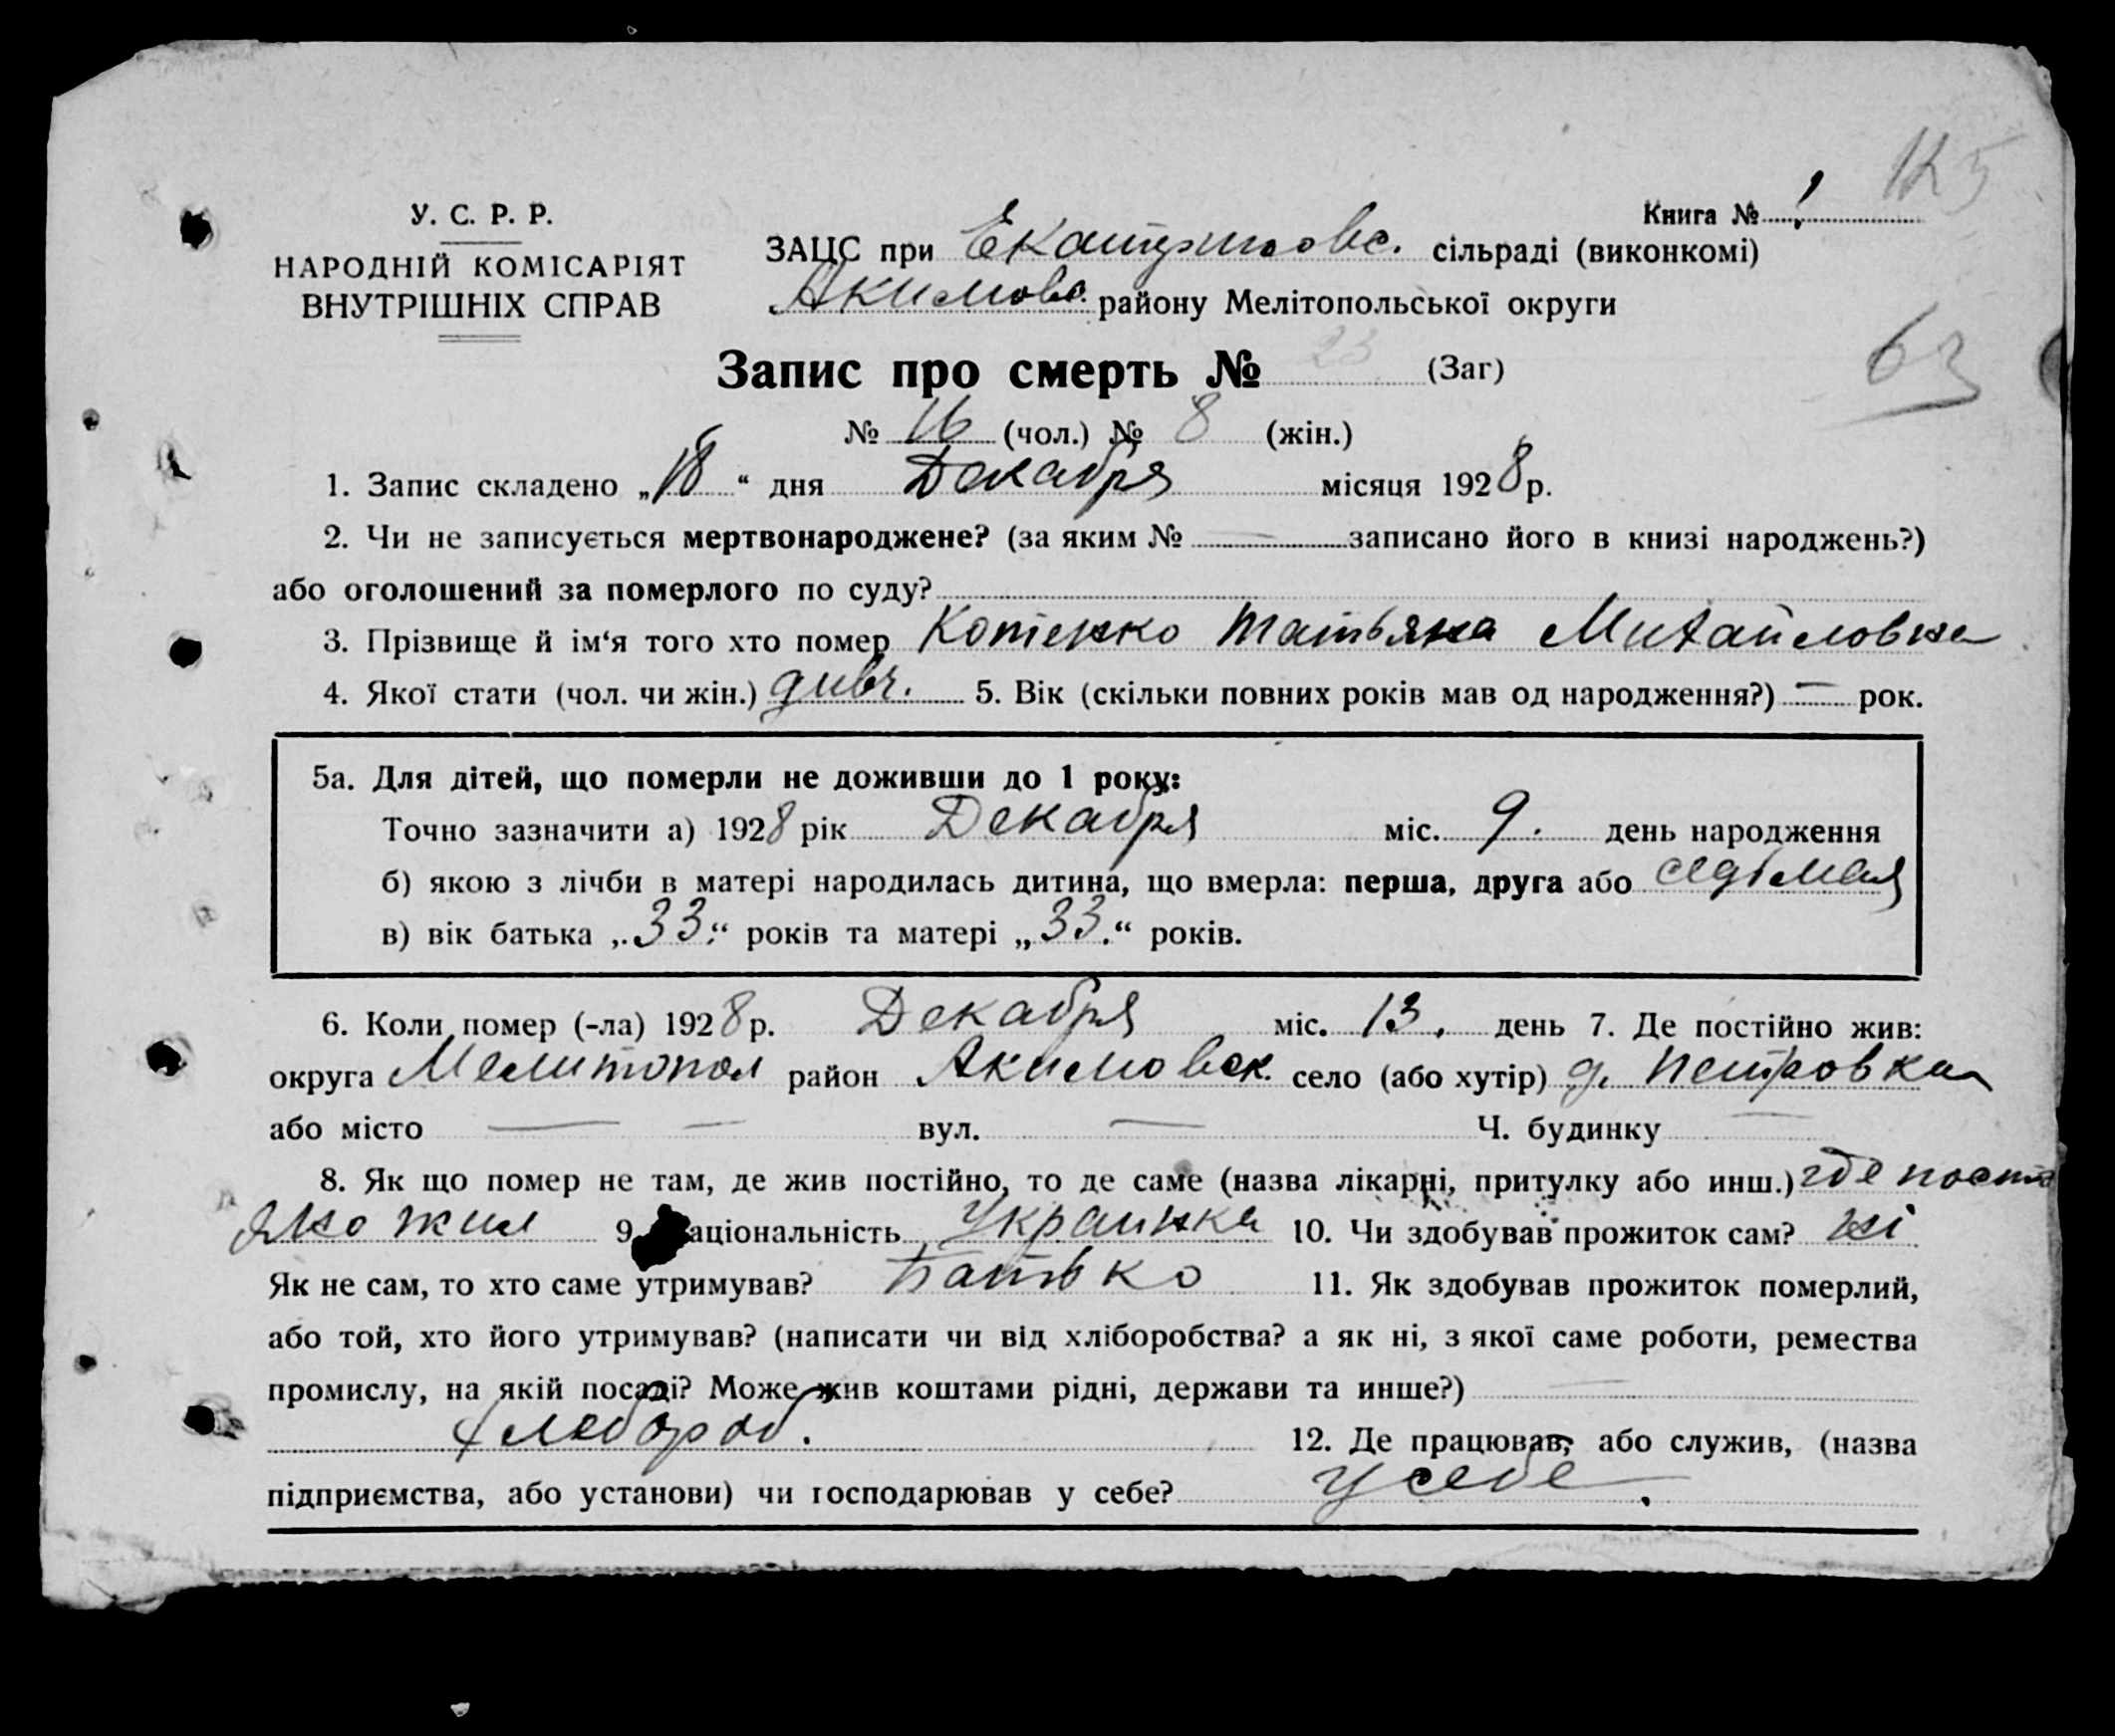 125
Книга № 1
У. С. Р. Р.
НАРОДНІЙ КОМІСАРІЯТ
ВНУТРІШНІХ СПРАВ
ЗАЦС при сільраді (виконкомі)
Акимовс. району Мелітопольської округи
63
Запис про смерть № 23 (Заг)
№ 16 (чол.) № 8 (жін.)
1. Запис складено „18“ дня Декабря місяця 1928 р.
2. Чи не записується мертвонароджене? (за яким № — записано його в книзі народжень?)
або оголошений за померлого по суду?
3. Прізвище й ім‘я того хто помер Котенко Татьяна Михайловна
4. Якої стати (чол. чи жін.) дивч. 5. Вік (скільки повних років мав од народження?) — рок.
5а. Для дітей, що померли не доживши до 1 року:
Точно зазначити а) 1928 рік Декабря міс. 9. день народження
б) якою з лічби в матері народилась дитина, що вмерла: перша, друга або седьмая
в) вік батька „33.“ років та матері „33.“ років.
6. Коли помер (-ла) 1928 р. Декабря міс. 13. день 7. Де постійно жив:
округа Мелитопол район Акимовск. село (або хутір) д. Петровка
або місто — — вул. — Ч. будинку —
8. Як що помер не там, де жив постійно, то де саме (назва лікарні, притулку або инш.) где посто
яно жил 9. Національність Украинка 10. Чи здобував прожиток сам? ні
Як не сам, то хто саме утримував? Батько 11. Як здобував прожиток померлий,
або той, хто його утримував? (написати чи від хліборобства? а як ні, з якої саме роботи, ремества
промислу, на якій посаді? Може жив коштами рідні, держави та инше?) —
хлебороб. 12. Де працював, або служив, (назва
підприємства, або установи) чи господарював у себе? у себе.